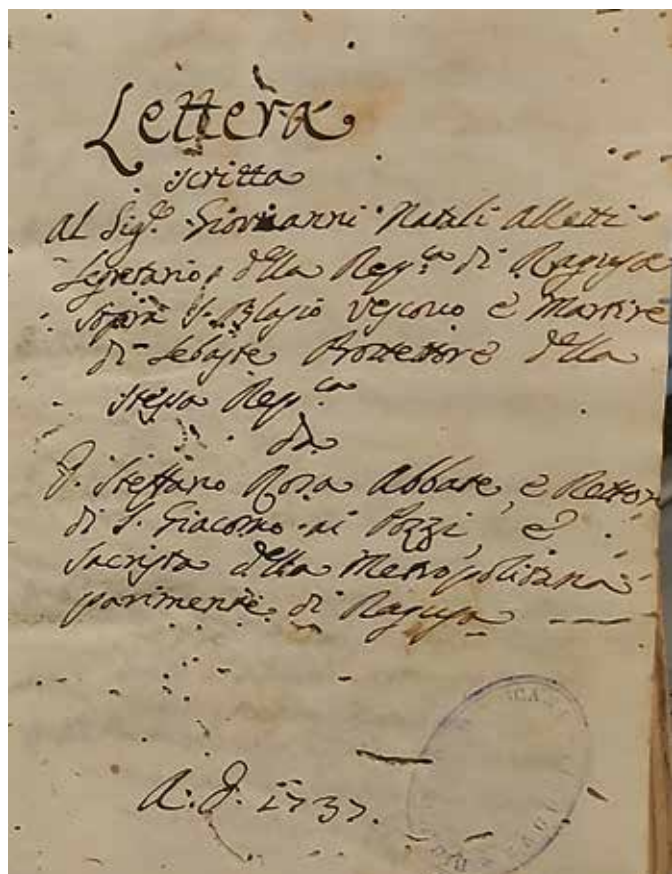 Lettera
scritta
al Sig.r Giovanni Natali Alletti
Segretario della Rep.ca di Ragusa
Sopra S. Blasio Vescovo e Martire
di Sebaste Protettore della
stessa Rep.ca
da
D. Steffano Rosa Abbate, e Rettor
di S. Giacomo ai Pozzi, e
Sacrista della Metropolitana
parimente di Ragusa
A. D. 1737.